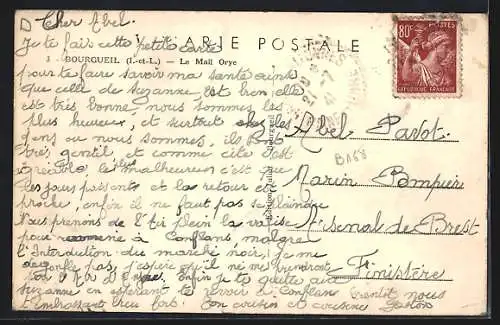 Cher Abel.
CARTE POSTALE
Je te fais cette petite carte
3 BOURGUEIL (I.-et-L.) — Le Mail Orye
pour te faire savoir ma santé ainsi
que celle de Suzanne est bien elle
est très bonne nous sommes les
plus heureux, et surtout chez les
gens ou nous sommes, ils
très gentil, et comme cite
le malheureux c'est que
les jours passent et la retour est
proche, enfin il ne faut pas se plaindre
Nous prenons de l' plein la valise
pour à Conflans malgré
l'Interdiction du marché noir, je me
gonfle pas, j'espère qu'il ne me prendront
pas Enfin je te quitte avec
Suzanne en espérant te revoir à Conflans bientôt nous
t'embrassant bien fort. Ton cousin et cousine Gaston
80c
POSTES
REPUBLIQUE FRANÇAISE
Abel Pavot.
Marin Pompier
Arsenal de Brest
Finistère